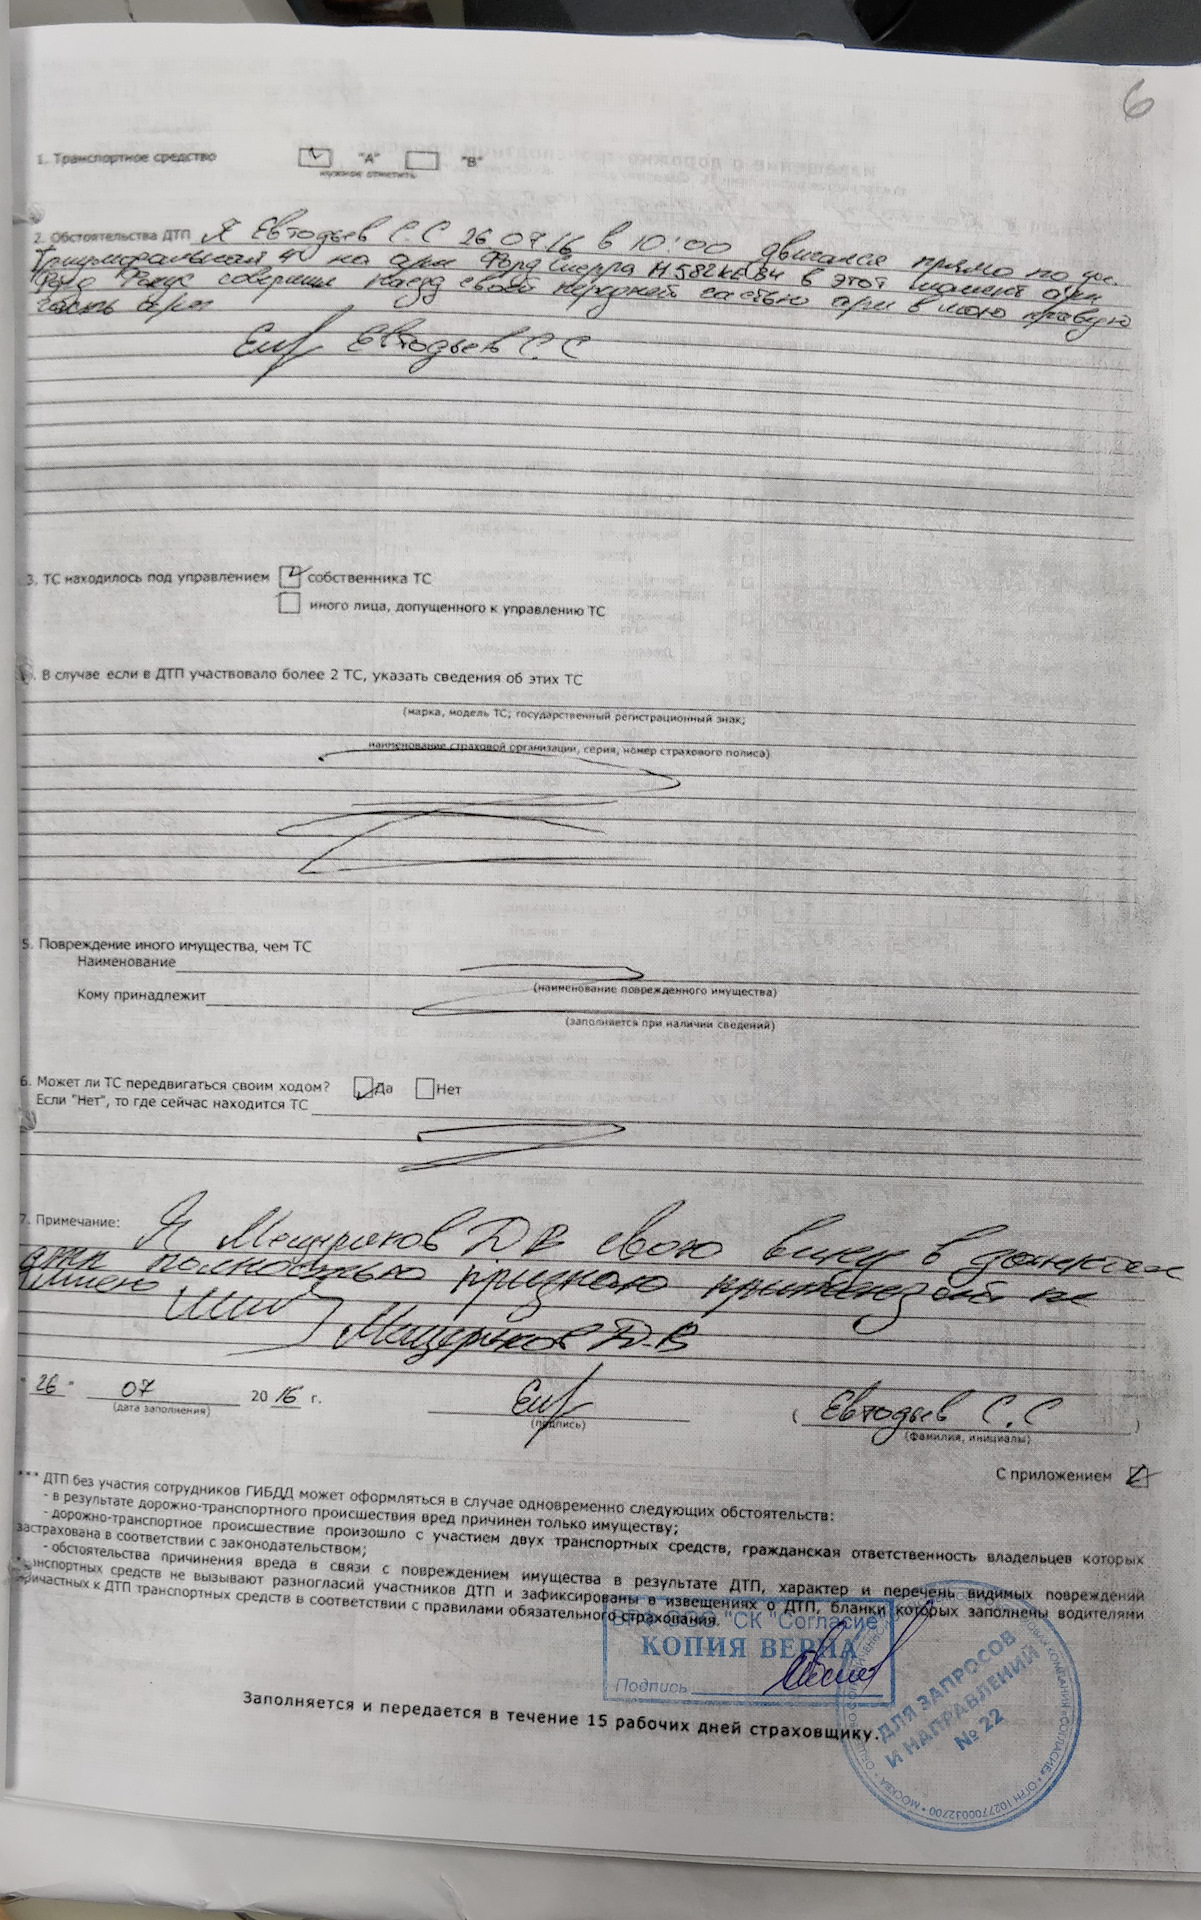 6
1. Транспортное средство "А" "В"
нужное отметить
2. Обстоятельства ДТП Я Евтодьев С.С 26.07.16 в 10:00 двигался прямо по
Триумфальная на Форд Сиерра в этот момент
Форд Фокус совершил наезд своей передней частью в мою правую
часть
Евтодьев С.С
3. ТС находилось под управлением собственника ТС
иного лица, допущенного к управлению ТС
. В случае если в ДТП участвовало более 2 ТС, указать сведения об этих ТС
(марка, модель ТС, государственный регистрационный знак;
наименование страховой организации, серия, номер страхового полиса)
5. Повреждение иного имущества, чем ТС
Наименование
(наименование поврежденного имущества)
Кому принадлежит
(заполняется при наличии сведений)
6. Может ли ТС передвигаться своим ходом? Да Нет
Если "Нет", то где сейчас находится ТС
7. Примечание: Я Мещеряков Д В свою вину в
дтп полностью признаю не
имею
Мещеряков Д.В
"26" 07 2016 г.
(дата заполнения) (подпись)
(Евтодьев С.С)
(фамилия, инициалы)
С приложением
*** ДТП без участия сотрудников ГИБДД может оформляться в случае одновременно следующих обстоятельств:
- в результате дорожно-транспортного происшествия вред причинен только имуществу;
- дорожно-транспортное происшествие произошло с участием двух транспортных средств, гражданская ответственность владельцев которых
застрахована в соответствии с законодательством;
- обстоятельства причинения вреда в связи с повреждением имущества в результате ДТП, характер и перечень видимых повреждений
транспортных средств не вызывают разногласий участников ДТП и зафиксированы в извещениях о ДТП, бланки которых заполнены водителями
причастных к ДТП транспортных средств в соответствии с правилами обязательного страхования.
ООО "СК "Согласие"
КОПИЯ ВЕРНА
Подпись
ДЛЯ ЗАПРОСОВ
И НАПРАВЛЕНИЙ
№ 22
СОГЛАСИЕ • ОГРН 1027700032700 • МОСКВА
Заполняется и передается в течение 15 рабочих дней страховщику.